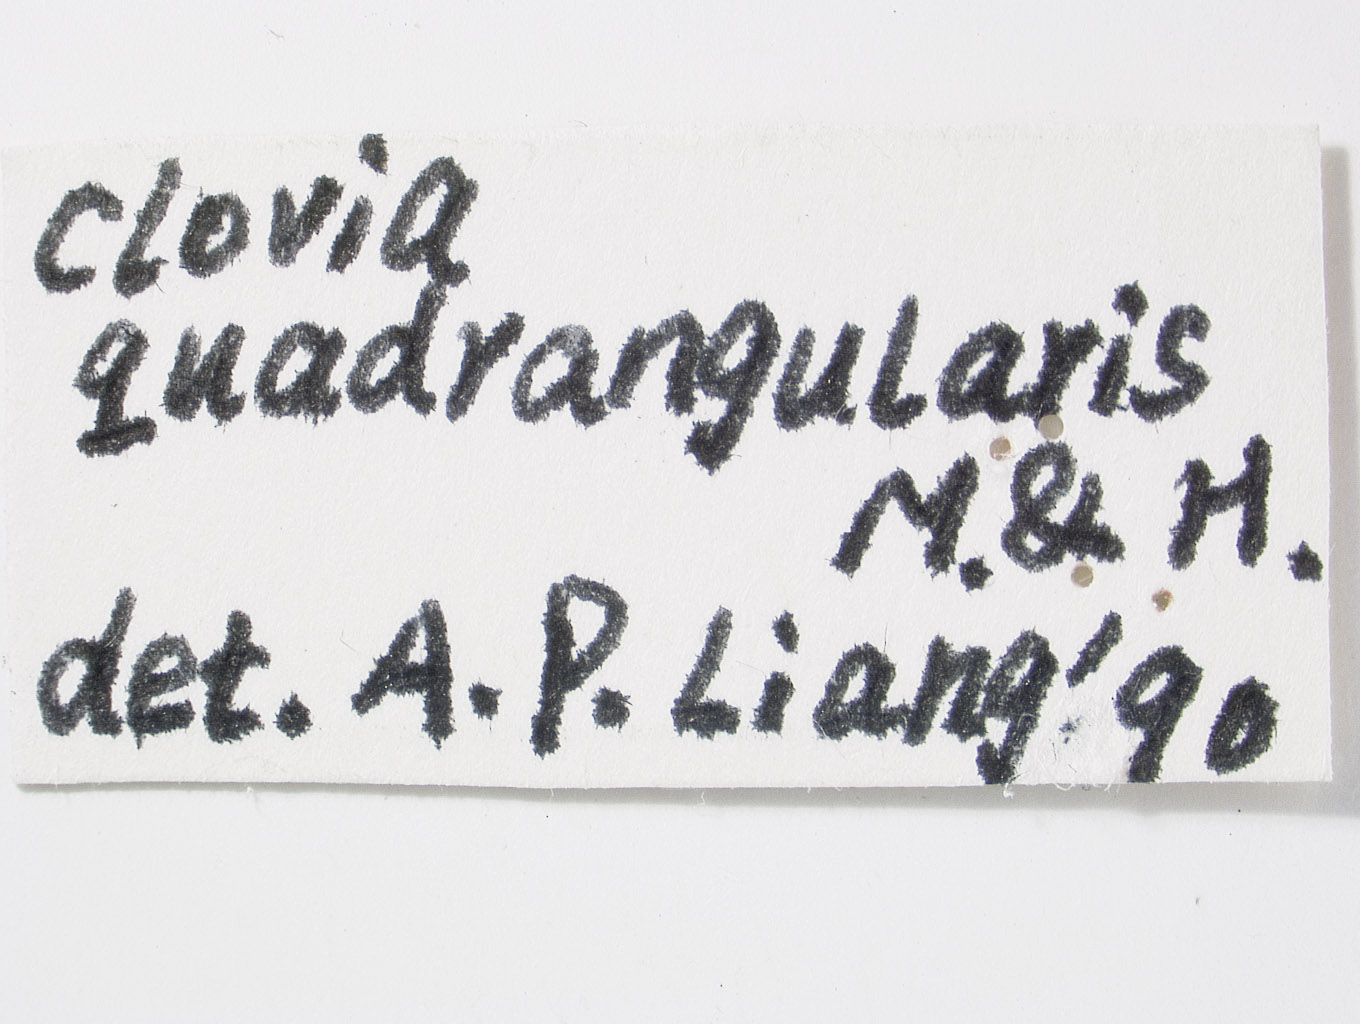 Clovia
quadrangularis
M. & H.
det. A.P. Liang '90